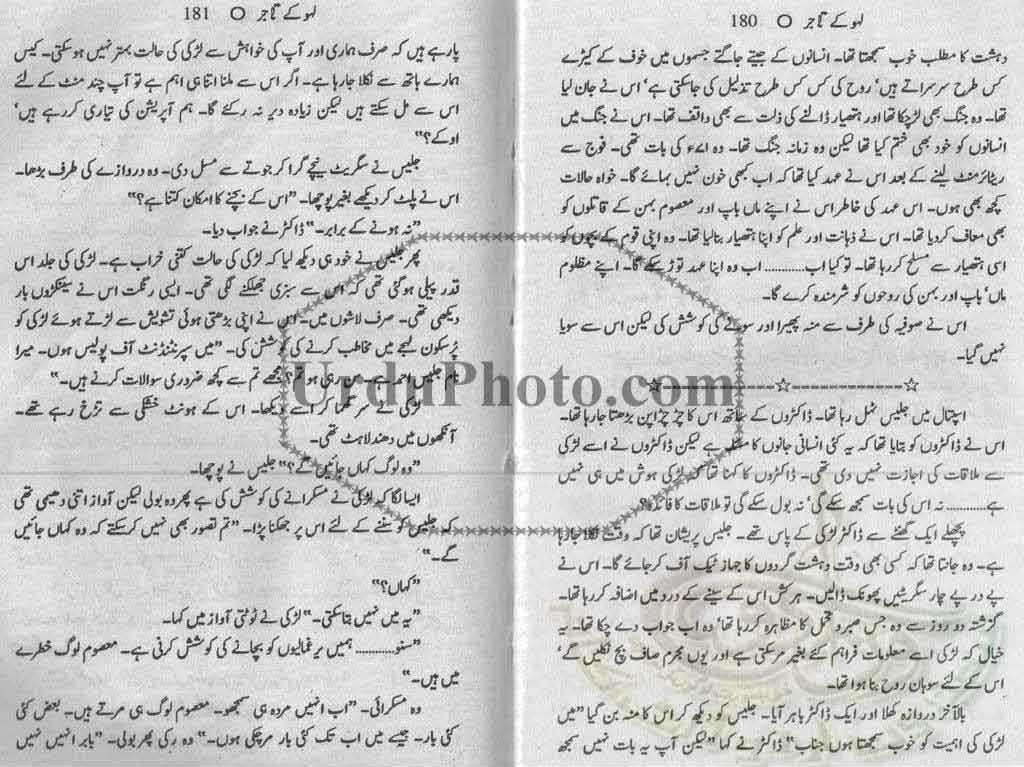 لہو کے تاجر O 180
دہشت کا مطلب خوب سمجھتا تھا۔ انسانوں کے جیتے جاگتے جسموں میں خوف کے کیڑے
کس طرح سرسراتے ہیں‘ روح کی کس کس طرح تذلیل کی جاسکتی ہے‘ اس نے جان لیا
تھا۔ وہ جنگ بھی لڑچکا تھا اور ہتھیار ڈالنے کی ذلت سے بھی واقف تھا۔ اس نے جنگ میں
انسانوں کو خود بھی ختم کیا تھا لیکن وہ زمانہ جنگ تھا۔ وہ ۷۱ء کی بات تھی۔ فوج سے
ریٹائرمنٹ لینے کے بعد اس نے عہد کیا تھا کہ اب کبھی خون نہیں بہائے گا۔ خواہ حالات
کچھ بھی ہوں۔ اس عہد کی خاطر اس نے اپنے ماں باپ اور معصوم بہن کے قاتلوں کو
بھی معاف کردیا تھا۔ اس نے ذہانت اور علم کو اپنا ہتھیار بنالیا تھا۔ وہ اپنی قوم کے بچوں کو
اسی ہتھیار سے مسلح کررہا تھا۔ تو کیا اب............ اب وہ اپنا عہد توڑ سکے گا۔ اپنے مظلوم
ماں‘ باپ اور بہن کی روحوں کو شرمندہ کرے گا۔
اس نے صوفیہ کی طرف سے منہ پھیرا اور سونے کی کوشش کی لیکن اس سے سویا
نہیں گیا۔
☆------------☆------------☆
اسپتال میں جلیس ٹہل رہا تھا۔ ڈاکٹروں کے ساتھ اس کا چڑچڑاپن بڑھتا جارہا تھا۔
اس نے ڈاکٹروں کو بتایا تھا کہ یہ کئی انسانی جانوں کا مسئلہ ہے لیکن ڈاکٹروں نے اسے لڑکی
سے ملاقات کی اجازت نہیں دی تھی۔ ڈاکٹروں کا کہنا تھا کہ لڑکی ہوش میں ہی نہیں
ہے............ نہ اس کی بات سمجھ سکے گی‘ نہ بول سکے گی تو ملاقات کا فائدہ؟
پچھلے ایک گھنٹے سے ڈاکٹر لڑکی کے پاس تھے۔ جلیس پریشان تھا کہ وقت نکلا جارہا
ہے۔ وہ جانتا تھا کہ کسی بھی وقت دہشت گردوں کا جہاز ٹیک آف کرجائے گا۔ اس نے
پے در پے چار سگریٹیں پھونک ڈالیں۔ ہر کش اس کے سینے کے درد میں اضافہ کررہا تھا۔
گزشتہ دو روز سے وہ جس صبر و تحمل کا مظاہرہ کررہا تھا‘ وہ اب جواب دے چکا تھا۔ یہ
خیال کہ لڑکی اسے معلومات فراہم کئے بغیر مرسکتی ہے اور یوں مجرم صاف بچ نکلیں گے‘
اس کے لئے سوہان روح بنا ہوا تھا۔
بالآخر دروازہ کھلا اور ایک ڈاکٹر باہر آیا۔ جلیس کو دیکھ کر اس کا منہ بن گیا ”میں
لڑکی کی اہمیت کو خوب سمجھتا ہوں جناب“ ڈاکٹر نے کہا ”لیکن آپ یہ بات نہیں سمجھ
لہو کے تاجر O 181
پارہے ہیں کہ صرف ہماری اور آپ کی خواہش سے لڑکی کی حالت بہتر نہیں ہوسکتی۔ کیس
ہمارے ہاتھ سے نکلا جارہا ہے۔ اگر اس سے ملنا اتنا ہی اہم ہے تو آپ چند منٹ کے لئے
اس سے مل سکتے ہیں لیکن زیادہ دیر نہ رکئے گا۔ ہم آپریشن کی تیاری کررہے ہیں‘
اوکے؟“
جلیس نے سگریٹ نیچے گرا کر جوتے سے مسل دی۔ وہ دروازے کی طرف بڑھا۔
اس نے پلٹ کر دیکھے بغیر پوچھا۔ ”اس کے بچنے کا امکان کتنا ہے؟“
”نہ ہونے کے برابر۔“ ڈاکٹر نے جواب دیا۔
پھر جلیس نے خود ہی دیکھ لیا کہ لڑکی کی حالت کتنی خراب ہے۔ لڑکی کی جلد اس
قدر پیلی ہوگئی تھی کہ اس سے سبزی جھلکنے لگی تھی۔ ایسی رنگت اس نے سینکڑوں بار
دیکھی تھی۔ صرف لاشوں میں۔ اس نے اپنی بڑھتی ہوئی تشویش سے لڑتے ہوئے لڑکی کو
پُرسکون لہجے میں مخاطب کرنے کی کوشش کی۔ ”میں سپرنٹنڈنٹ آف پولیس ہوں۔ میرا
نام جلیس احمد ہے۔ سن رہی ہو نا؟ مجھے تم سے کچھ ضروری سوالات کرنے ہیں۔“
لڑکی نے سر گھما کر اسے دیکھا۔ اس کے ہونٹ خشکی سے تڑخ رہے تھے۔
آنکھوں میں دھندلاہٹ تھی۔
”وہ لوگ کہاں جائیں گے؟“ جلیس نے پوچھا۔
ایسا لگا کہ لڑکی نے مسکرانے کی کوشش کی ہے پھر وہ بولی لیکن آواز اتنی دھیمی تھی
کہ جلیس کو سننے کے لئے اس پر جھکنا پڑا۔ ”تم تصور بھی نہیں کرسکتے کہ وہ کہاں جائیں
گے۔“
”کہاں؟“
”یہ میں نہیں بتاسکتی۔“ لڑکی نے ٹوٹتی آواز میں کہا۔
”سنو............ ہمیں یرغمالیوں کو بچانے کی کوشش کرنی ہے۔ معصوم لوگ خطرے
میں ہیں۔“
وہ مسکرائی۔ ”اب انہیں مردہ ہی سمجھو۔ معصوم لوگ ہی مرتے ہیں۔ بعض کئی
کئی بار۔ جیسے میں اب تک کئی بار مرچکی ہوں۔“ وہ رکی پھر بولی۔ ”بابر انہیں نہیں
UrduPhoto.com